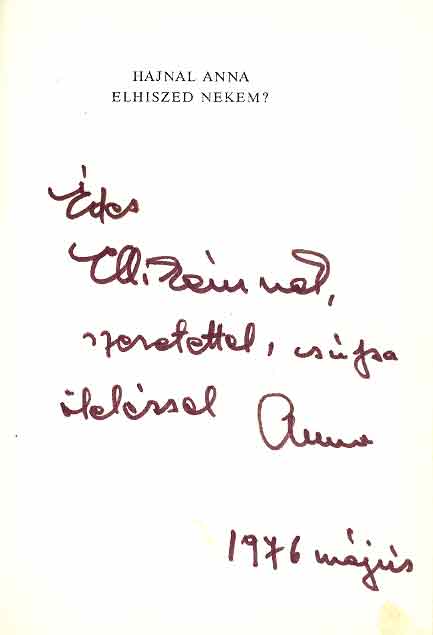 HAJNAL ANNA
ELHISZED NEKEM?
Édes
Ellikémnek,
szeretettel, csúfsa
öleléssel Anna
1976 május